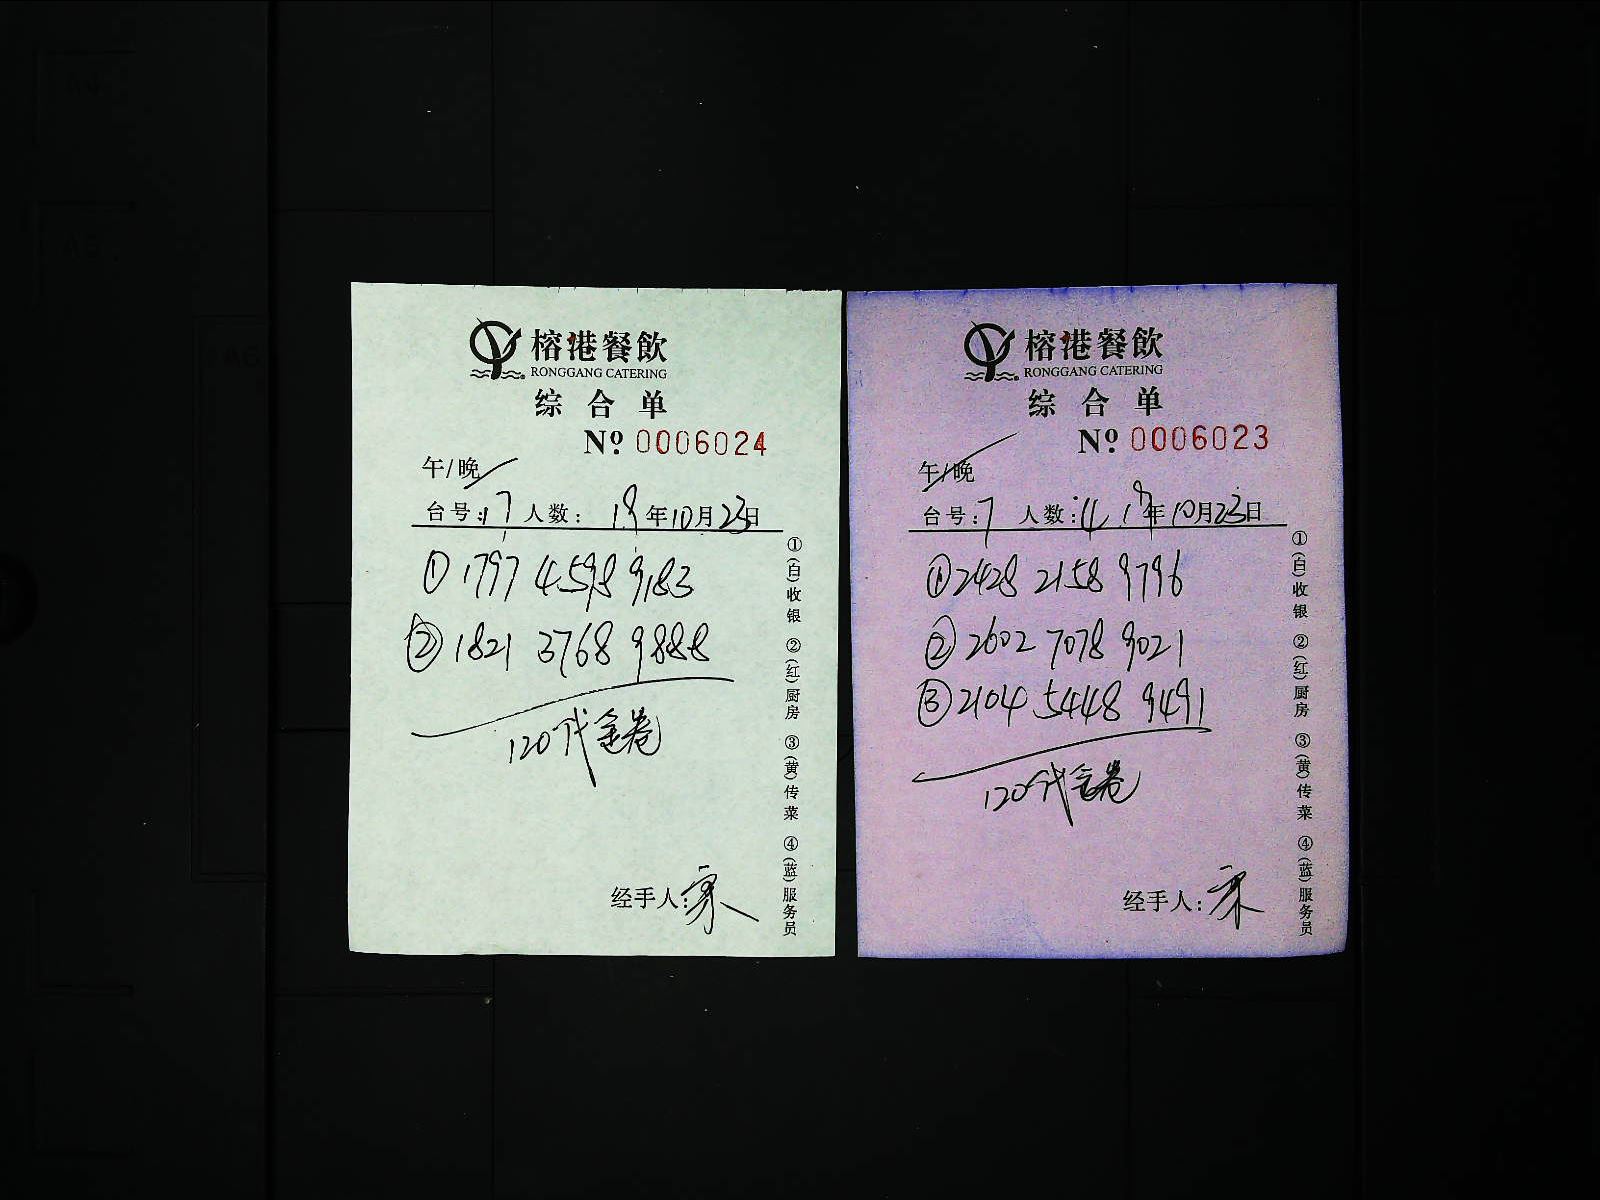 榕港餐飲
RONGGANG CATERING
综合单
Nº 0006024
午/晚
台号:17 人数: 19年10月23日
① 1797 4598 9183
② 1821 3768 9888
120代金卷
经手人:
①(白)收银 ②(红)厨房 ③(黄)传菜 ④(蓝)服务员
榕港餐飲
RONGGANG CATERING
综合单
Nº 0006023
午/晚
台号:7 人数:4 19年10月23日
① 2428 2158 9796
② 2602 7078 9021
③ 2104 5448 9491
120代金卷
经手人:
①(白)收银 ②(红)厨房 ③(黄)传菜 ④(蓝)服务员